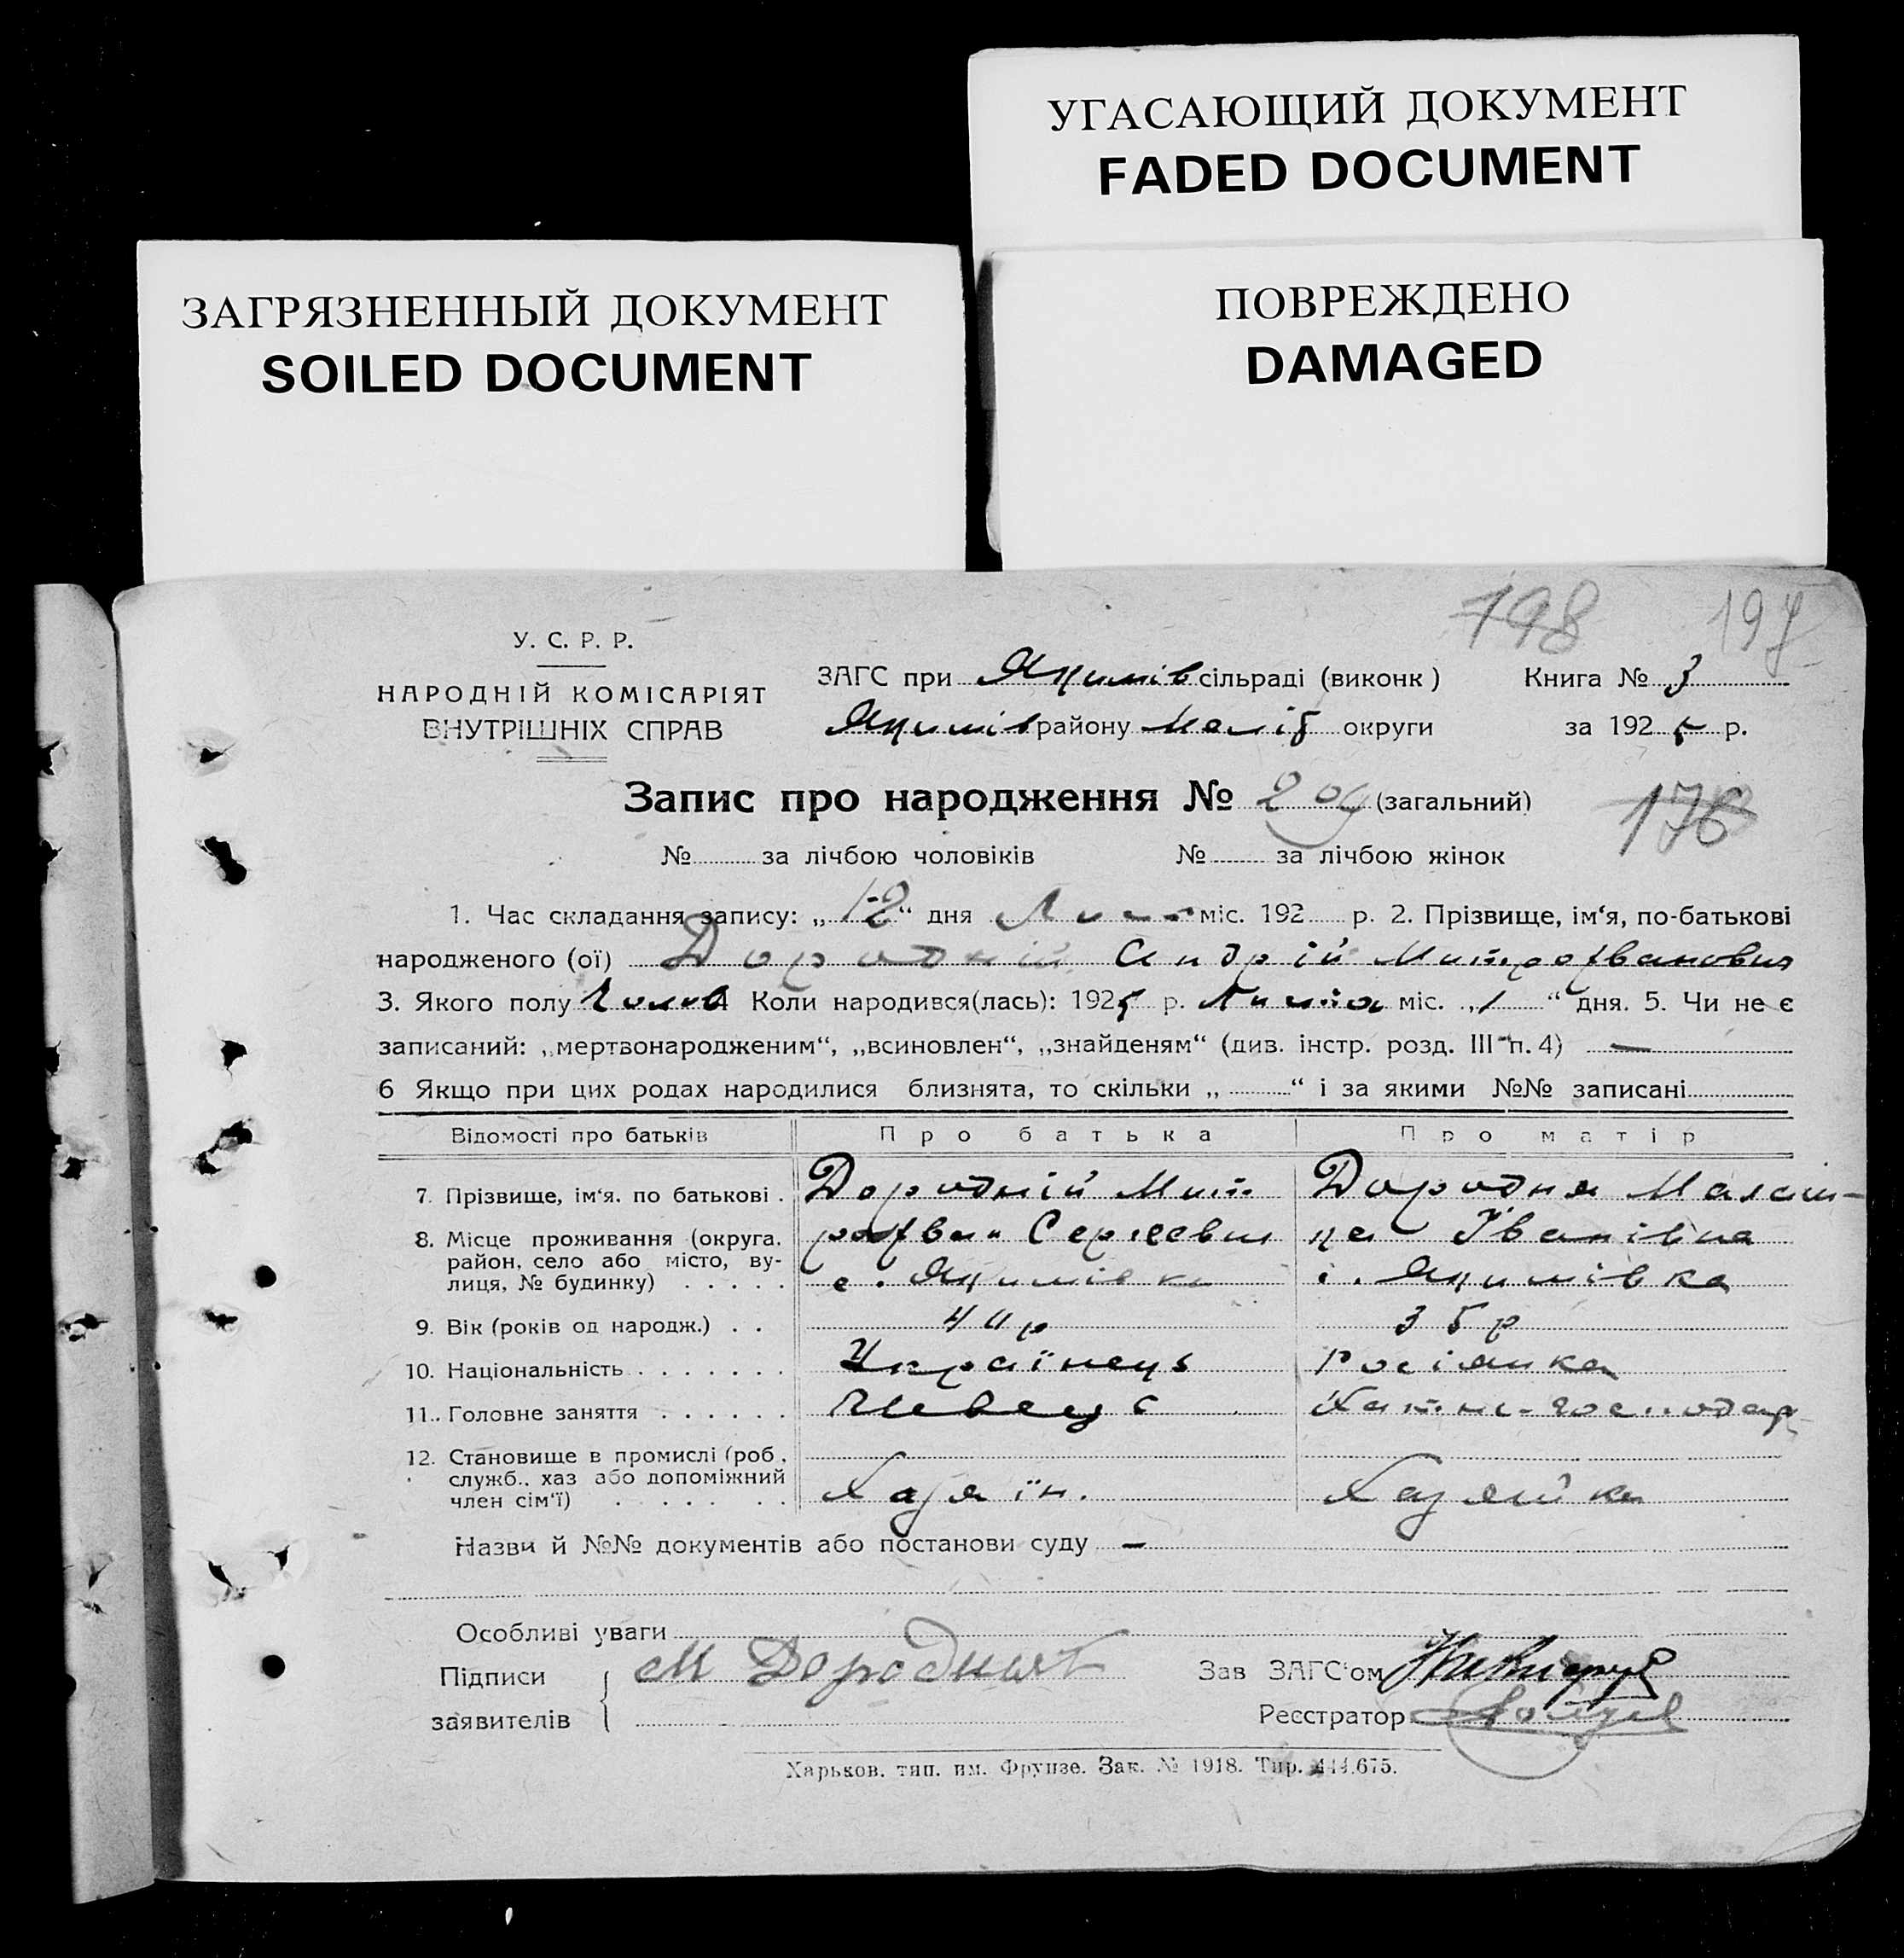 УГАСАЮЩИЙ ДОКУМЕНТ
FADED DOCUMENT
ЗАГРЯЗНЕННЫЙ ДОКУМЕНТ
SOILED DOCUMENT
ПОВРЕЖДЕНО
DAMAGED
198 197
У. С. Р. Р.
НАРОДНІЙ КОМІСАРІЯТ
ВНУТРІШНІХ СПРАВ
ЗАГС при Якимів сільраді (виконк) Книга № 3
Якимів району Меліт округи за 1925 р.
Запис про народження № 209 (загальний) 176
№ за лічбою чоловіків № за лічбою жінок
1. Час складання запису: „12“ дня міс. 192 р. 2. Прізвище, ім‘я, по-батькові
народженого (ої) Дородній Андрій Митрофванович
3. Якого полу Чолов 4 Коли народився(лась): 1925 р. Липня міс. „1“ дня. 5. Чи не є
записаний: „мертвонародженим“, „всиновлен“, „знайденям“ (див. інстр. розд. III п. 4) —
6 Якщо при цих родах народилися близнята, то скільки „ “ і за якими №№ записані
Відомості про батьків Про батька Про матір
7. Прізвище, ім‘я. по батькові . Дородній Мит Дородня Малан-
8. Місце проживання (округа. рофван Сергеевич Іванівна
район, село або місто, ву-
лиця, № будинку) . . . . . с. Якимівка с. Якимівка
9. Вік (років од народж.) . . 40 р 35 р
10. Національність . . . . . . . Українець Росіянка
11. Головне заняття . . . . . . Швець Хатнє-господар
12. Становище в промислі (роб.,
служб., хаз або допоміжний
член сім‘ї) . . . . . . . Хазяїн. Хазяйка
Назви й №№ документів або постанови суду —
Особливі уваги
Підписи М Дородний Зав ЗАГС‘ом
заявителів Реєстратор
Харьков. тип. им. Фрунзе. Зак. № 1918. Тир. 444.675.